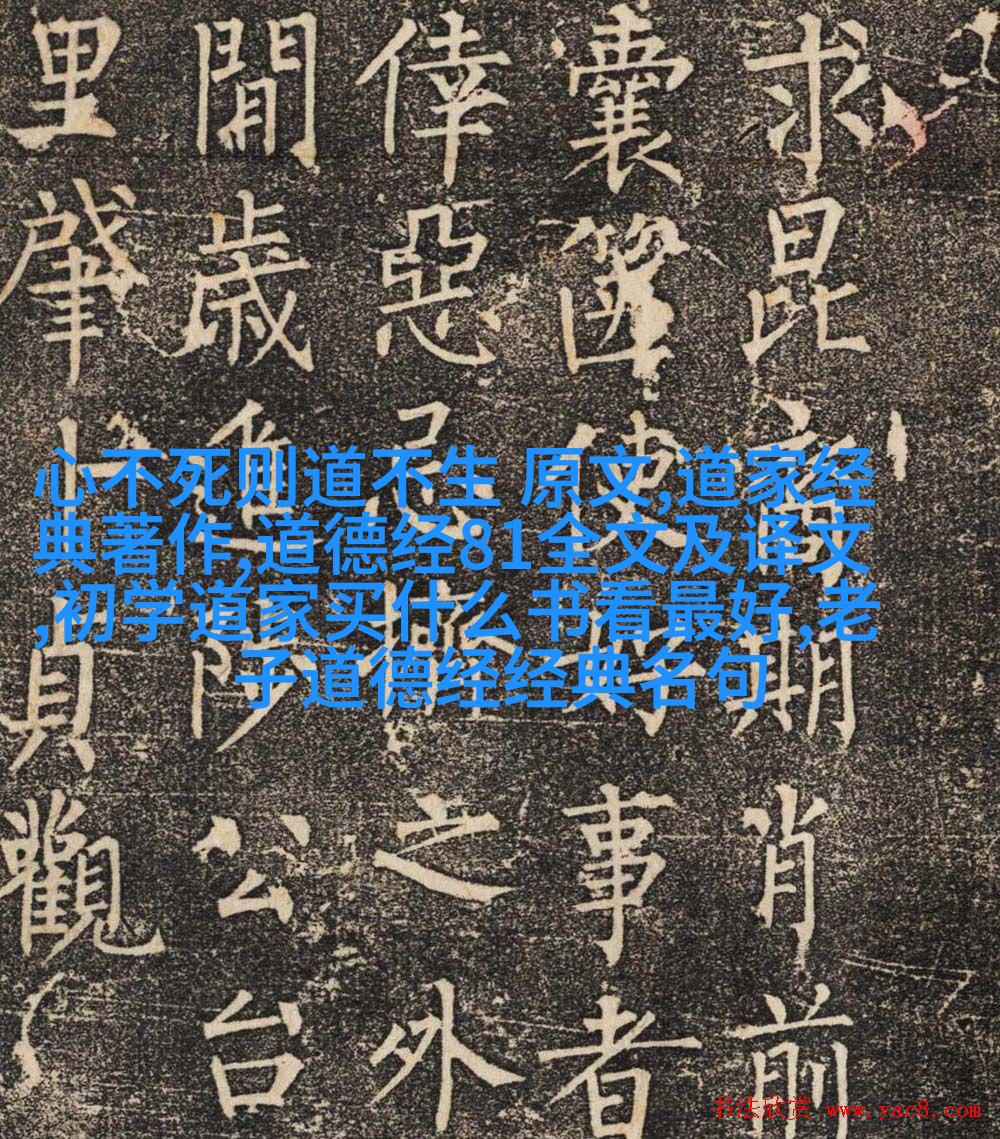 心不死则道不生 原文,道家经
典著作,道德经81全文及译文
,初学道家买什么书看最好,老
子道德经经典名句
求昆裔期肖前
囊篋使事者
倖惡忌之外
閒歲公台
里肇上貞觀
书法欣赏 www.yac8.com